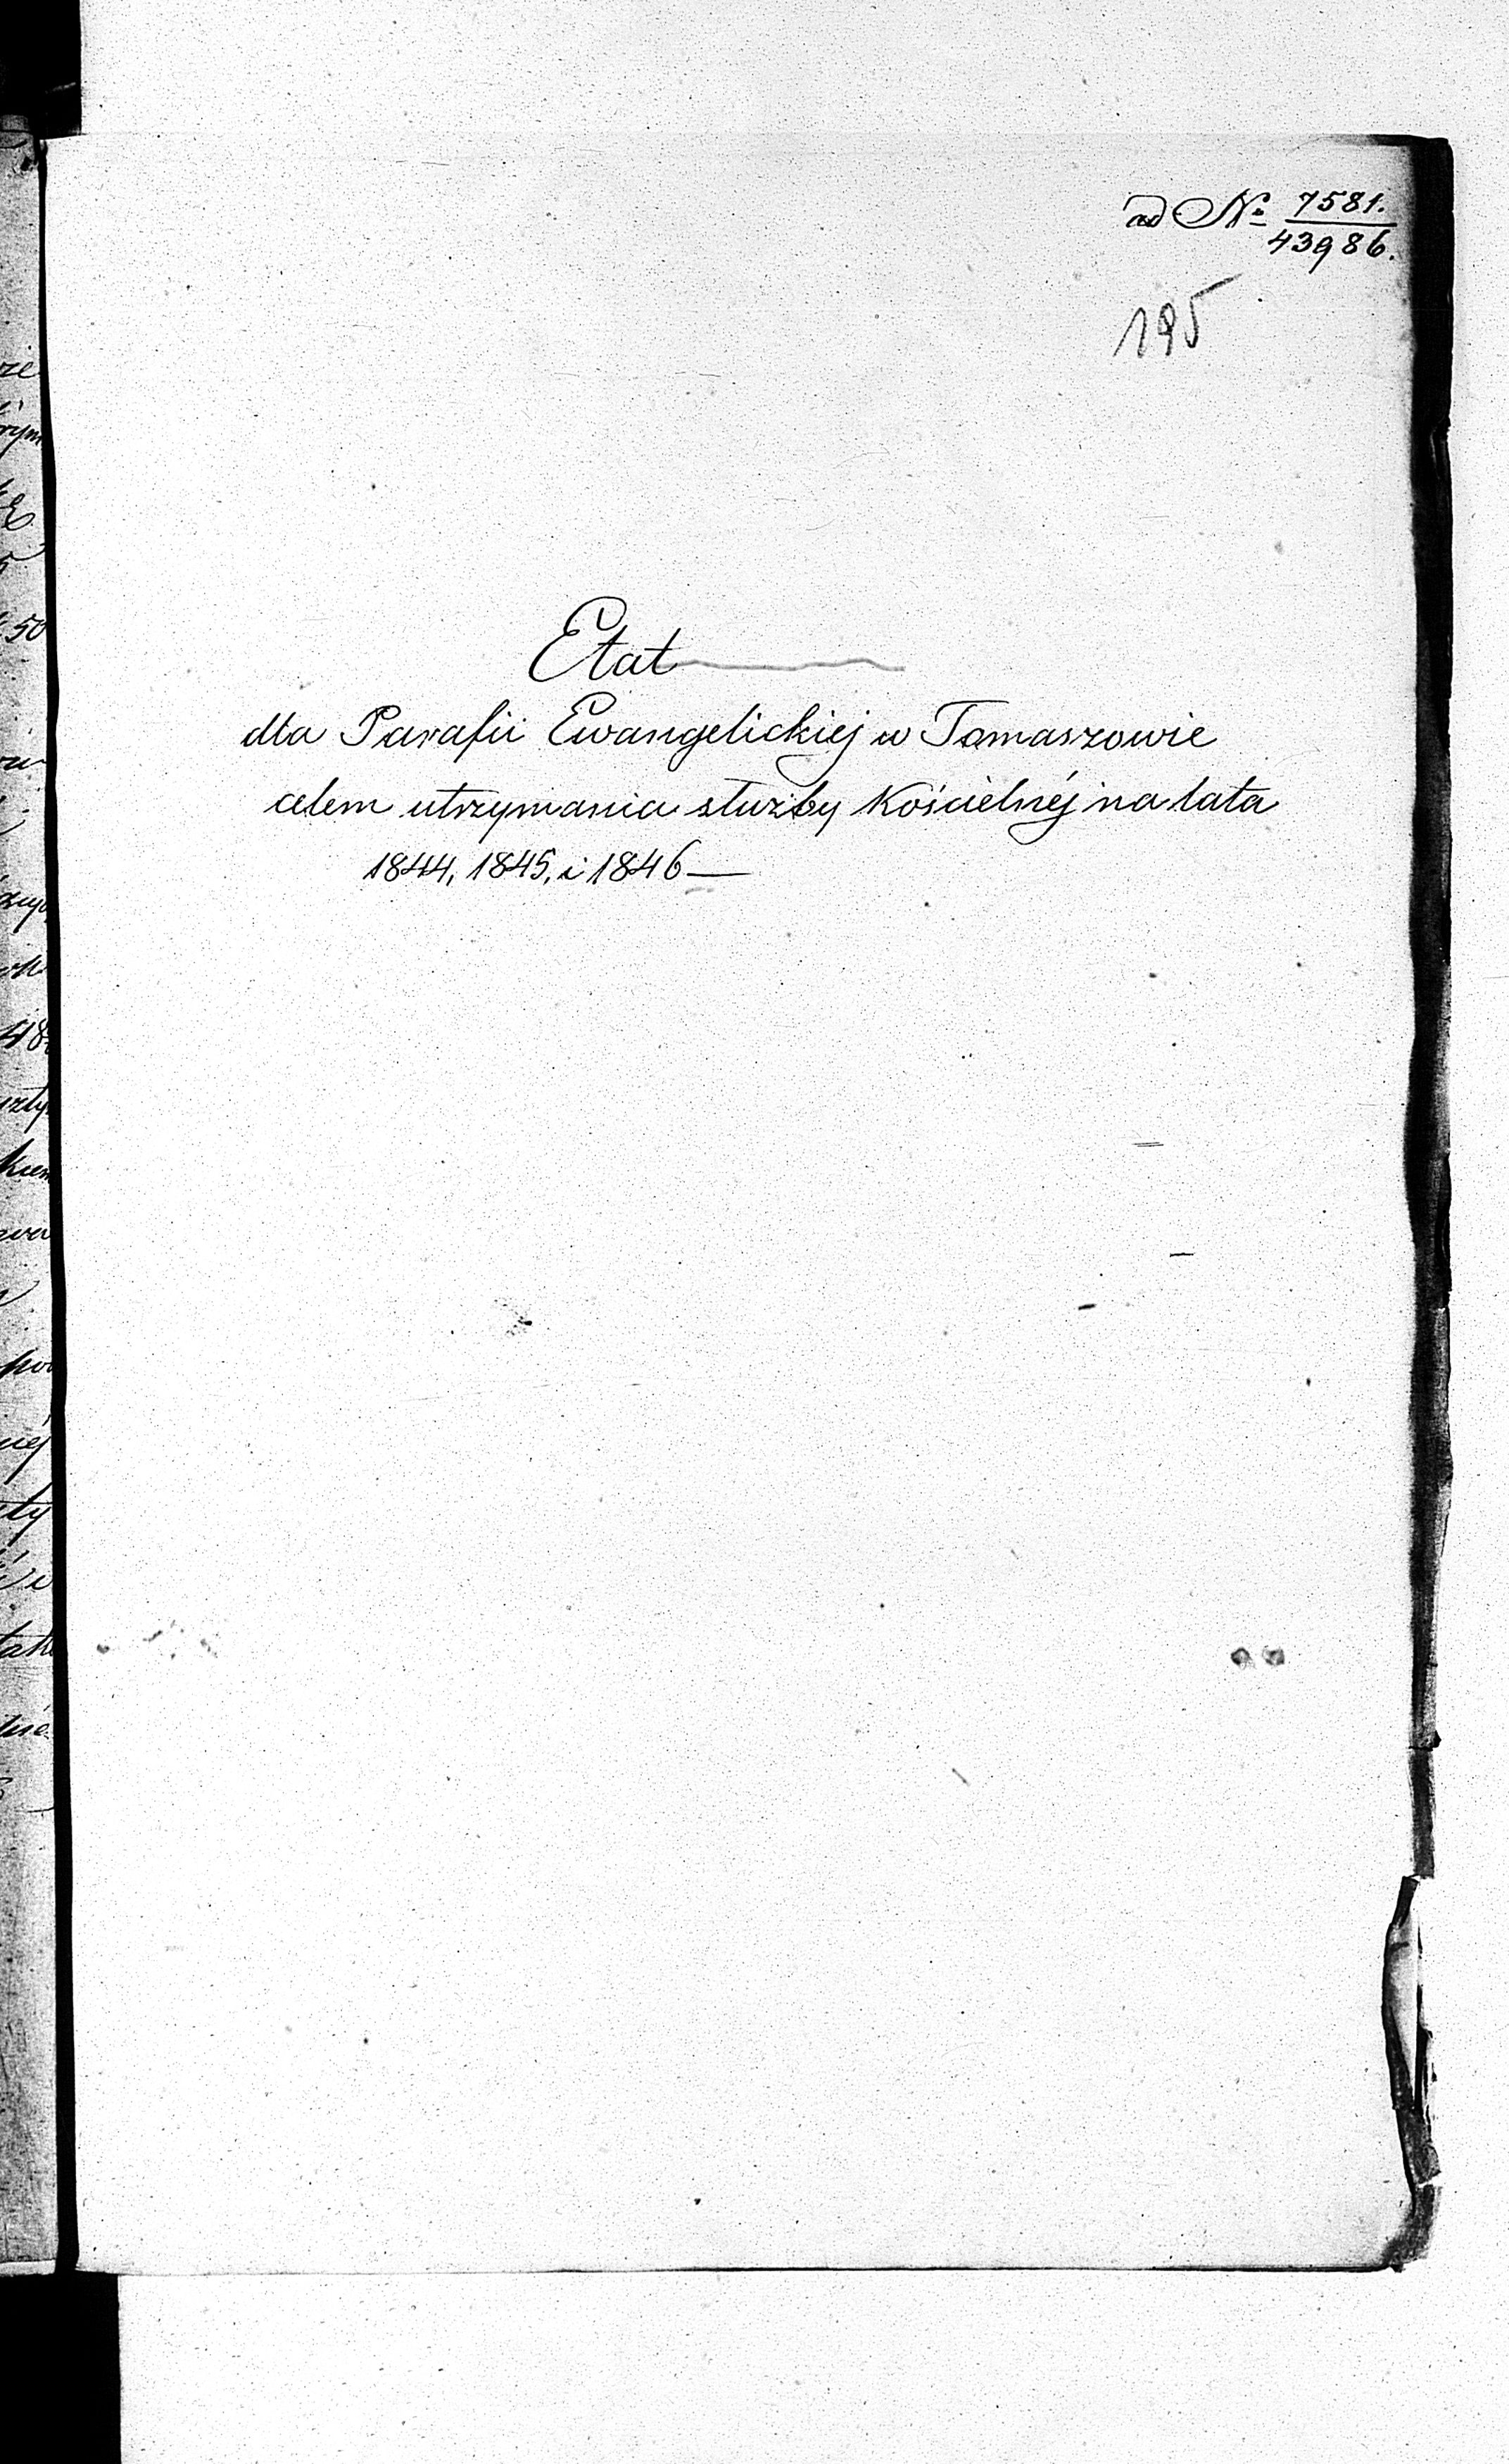 ad № 7581.
43986.
195
Etat
dla Parafii Ewangelickiej w Tomaszowie
celem utrzymania służby Kościelnéj na lata
1844, 1845, i 1846 —